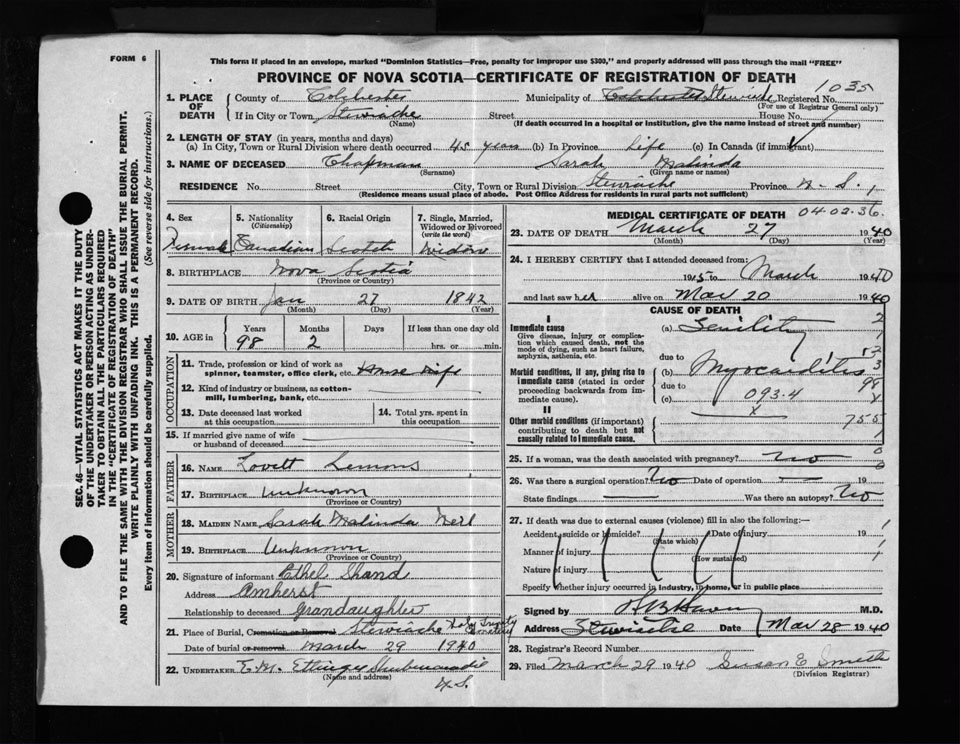 FORM 6
This form if placed in an envelope, marked "Dominion Statistics—Free, penalty for improper use $300," and properly addressed will pass through the mail "FREE"
PROVINCE OF NOVA SCOTIA—CERTIFICATE OF REGISTRATION OF DEATH
SEC. 46—VITAL STATISTICS ACT MAKES IT THE DUTY
OF THE UNDERTAKER OR PERSON ACTING AS UNDER-
TAKER TO OBTAIN ALL THE PARTICULARS REQUIRED
IN THE "CERTIFICATE OF REGISTRATION OF DEATH"
AND TO FILE THE SAME WITH THE DIVISION REGISTRAR WHO SHALL ISSUE THE BURIAL PERMIT.
WRITE PLAINLY WITH UNFADING INK. THIS IS A PERMANENT RECORD.
Every item of information should be carefully supplied. (See reverse side for instructions.)
1. PLACE OF DEATH
County of Colchester Municipality of Colchester Stewiacke Registered No. 1035
(For use of Registrar General only)
If in City or Town Stewiacke Street House No.
(Name) (If death occurred in a hospital or institution, give the name instead of street and number)
2. LENGTH OF STAY (in years, months and days)
(a) In City, Town or Rural Division where death occurred 45 years (b) In Province Life (c) In Canada (if immigrant)
3. NAME OF DECEASED Chapman Sarah Malinda
(Surname) (Given name or names)
RESIDENCE No. Street City, Town or Rural Division Stewiacke Province N. S.
(Residence means usual place of abode. Post Office Address for residents in rural parts not sufficient)
4. Sex 5. Nationality (Citizenship) 6. Racial Origin 7. Single, Married, Widowed or Divorced (write the word)
Female Canadian Scotch Widow
8. BIRTHPLACE Nova Scotia
(Province or Country)
9. DATE OF BIRTH Jan 27 1842
(Month) (Day) (Year)
10. AGE in Years Months Days If less than one day old
98 2 hrs. or min.
OCCUPATION
11. Trade, profession or kind of work as spinner, teamster, office clerk, etc. House Wife
12. Kind of industry or business, as cotton-mill, lumbering, bank, etc.
13. Date deceased last worked at this occupation
14. Total yrs. spent in this occupation
15. If married give name of wife or husband of deceased
FATHER
16. NAME Lovett Lemons
17. BIRTHPLACE Unknown
(Province or Country)
MOTHER
18. MAIDEN NAME Sarah Malinda
19. BIRTHPLACE Unknown
(Province or Country)
20. Signature of informant Ethel Shand
Address Amherst
Relationship to deceased Grandaughter
21. Place of Burial, Cremation or Removal Stewiacke Holy Trinity Cemetery
Date of burial or removal March 29 1940
22. UNDERTAKER E. M. Ettinger Shubenacadie
(Name and address)
N.S.
MEDICAL CERTIFICATE OF DEATH 04.02.36.
23. DATE OF DEATH March 27 1940
(Month) (Day) (Year)
24. I HEREBY CERTIFY that I attended deceased from:
1915 to March 1940
and last saw her alive on Mar 20 1940
CAUSE OF DEATH
I
Immediate cause
Give disease, injury or complication which caused death, not the mode of dying, such as heart failure, asphyxia, asthenia, etc.
(a) Senility
due to
Morbid conditions, if any, giving rise to immediate cause (stated in order proceeding backwards from immediate cause).
(b) Myocarditis
due to
(c) 093.4
II
Other morbid conditions (if important) contributing to death but not causally related to immediate cause.
x
755
25. If a woman, was the death associated with pregnancy? No
26. Was there a surgical operation? No Date of operation — 19
State findings — Was there an autopsy? No
27. If death was due to external causes (violence) fill in also the following:—
Accident, suicide or homicide? Date of injury 19
(State which)
Manner of injury
(How sustained)
Nature of injury
Specify whether injury occurred in industry, in home, or in public place
Signed by M.D.
Address Stewiacke Date Mar 28 1940
28. Registrar's Record Number
29. Filed March 29 1940 Susan E. Smith
(Division Registrar)